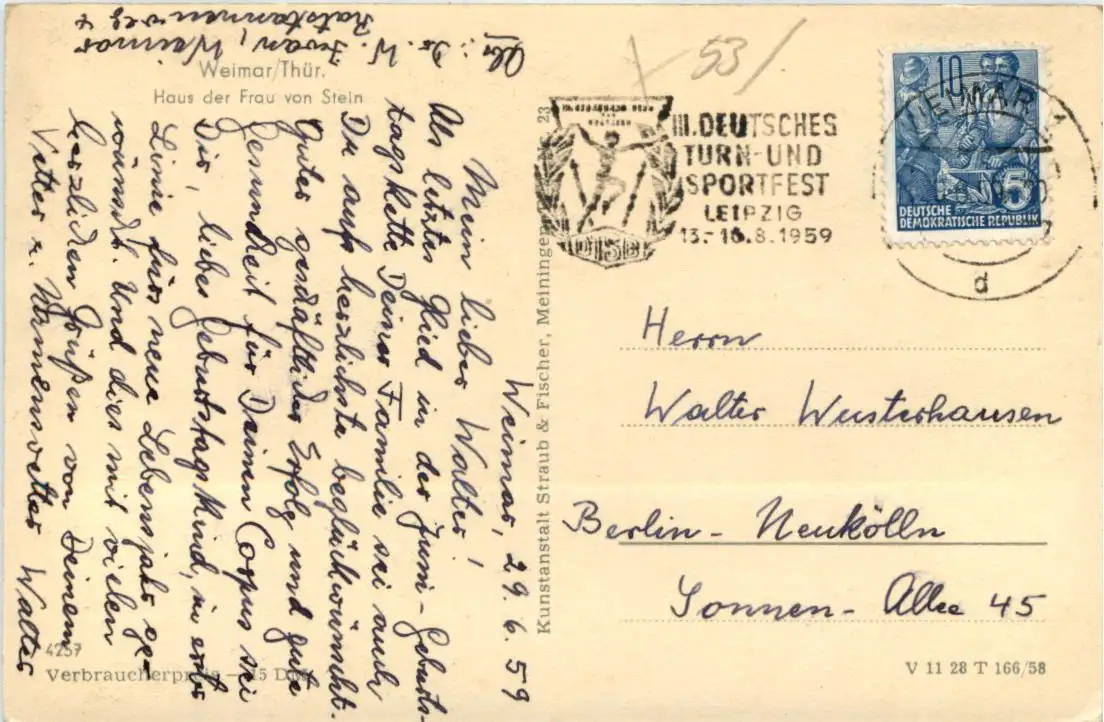 Abs.: Dr. W. Iwan, Weimar
Ratstannenweg 4
Weimar/Thür.
Haus der Frau von Stein
Weimar, 29. 6. 59
Mein lieber Walter!
Als letztes Glied in der Juni-Geburts-
tagskette Deiner Familie sei auch
Du aufs herzlichste beglückwünscht.
Guter geschäftlicher Erfolg und gute
Gesundheit für Deinen Corpus sei
Dir, liebes Geburtstagskind, in erster
Linie fürs neue Lebensjahr ge-
wünscht. Und dies mit vielen
herzlichen Grüßen von Deinem
Vetter u. Namensvetter Walter
4257
Verbraucherpreis — 15 DM
Kunstanstalt Straub & Fischer, Meiningen 23
53/
III. DEUTSCHES
TURN- UND
SPORTFEST
LEIPZIG
13.-16.8.1959
WEIMAR
d
10
5
DEUTSCHE
DEMOKRATISCHE REPUBLIK
Herrn
Walter Wusterhausen
Berlin-Neukölln
Sonnen-Allee 45
V 11 28 T 166/58